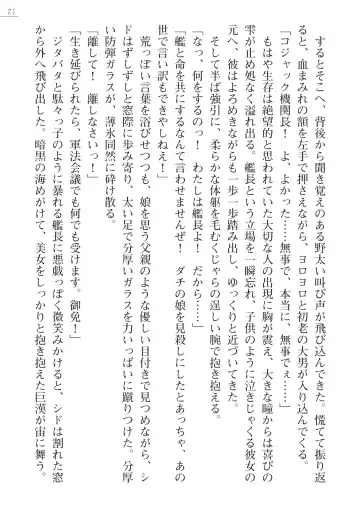 21
するとそこへ、背後から聞き覚えのある野太い叫び声が飛び込んできた。慌てて振り返
ると、血まみれの額を左手で押さえながら、ヨロヨロと初老の大男が入り込んでくる。
「コジャック機関長!　よ、よかった……無事で、本当に、無事でぇ……」
もはや生存は絶望的と思われていた大切な人の出現に胸が震え、大きな瞳からは喜びの
雫が止め処なく溢れ出る。艦長という立場を一瞬忘れ、子供のように泣きじゃくる彼女の
元へ、彼はよろめきながらも一歩一歩踏み出し、ゆっくりと近づいてくる。
そして半ば強引に、柔らかな体躯を毛むくじゃらの逞しい腕で抱き抱える。
「なっ、何をするのっ!　わたしは艦長よ!　だから……」
「艦と命を共にするなんて言わせませんぜ!　ダチの娘を見殺しにしたとあっちゃ、あの
世で言い訳もできやしねぇ!」
荒っぽい言葉を浴びせつつも、娘を思う父親のような優しい目付きで見つめながら、シ
ドはずしずしと窓際に歩み寄り、太い足で分厚いガラスを力いっぱいに蹴りつけた。分厚
い防弾ガラスが、薄氷同然に砕け散る。
「離して!　離しなさいっ!」
「生き延びられたら、軍法会議でも何でも受けます。御免!」
ジタバタと駄々っ子のように暴れる艦長に悪戯っぽく微笑みかけると、シドは割れた窓
から外へ飛び出した。暗黒の海めがけて、美女をしっかりと抱き抱えた巨漢が宙に舞う。